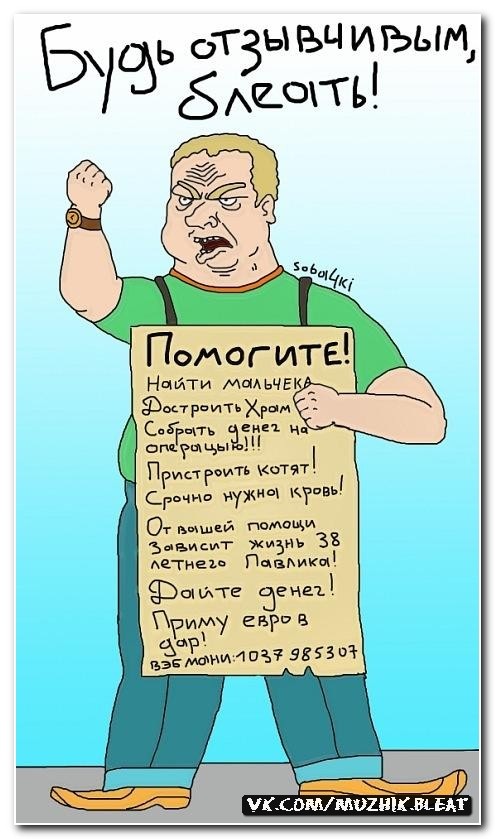 Будь отзывчивым,
блеать!
sobal4ki
Помогите!
Найти мальчека
Достроить Храм
Собрать денег на
операцыю!!!
Пристроить котят!
Срочно нужна кровь!
От вашей помощи
Зависит жизнь 38
летнего Павлика!
Дайте денег!
Приму евро в
дар!
вэбмани:1037985307
VK.COM/MUZHIK.BLEAT